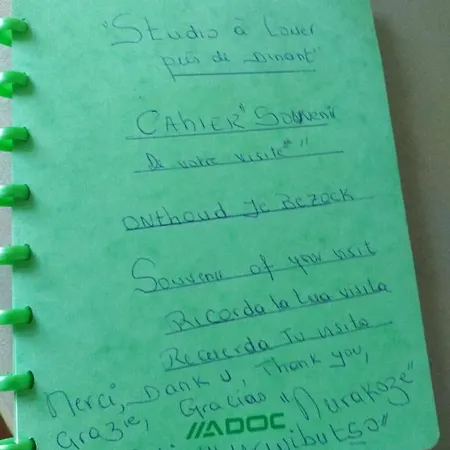 "Studio à Louer
près de Dinant"
CAHIER "Souvenir
De votre visite"
ONthoud Je Bezoek
Souvenir of your visit
Ricorda la tua visita
Recuerda Tu visita
Merci, Dank u, Thank you,
Grazie, Gracias "Murakoze"
ADOC